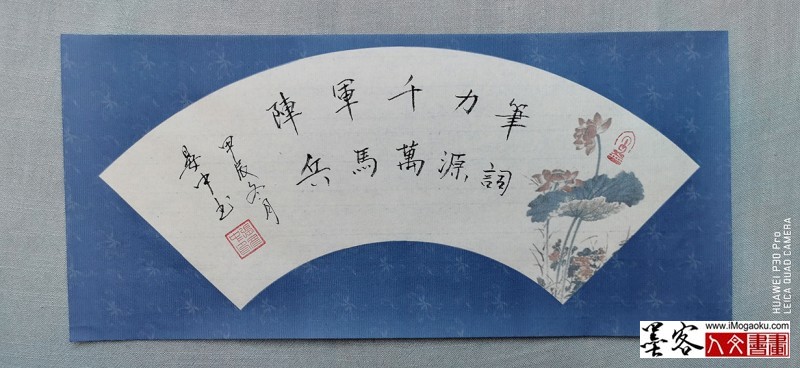 筆力千軍陣
詞源萬馬兵
甲辰冬月
HUAWEI P30 Pro
LEICA QUAD CAMERA
www.iMogaoku.com
墨客人文書畫